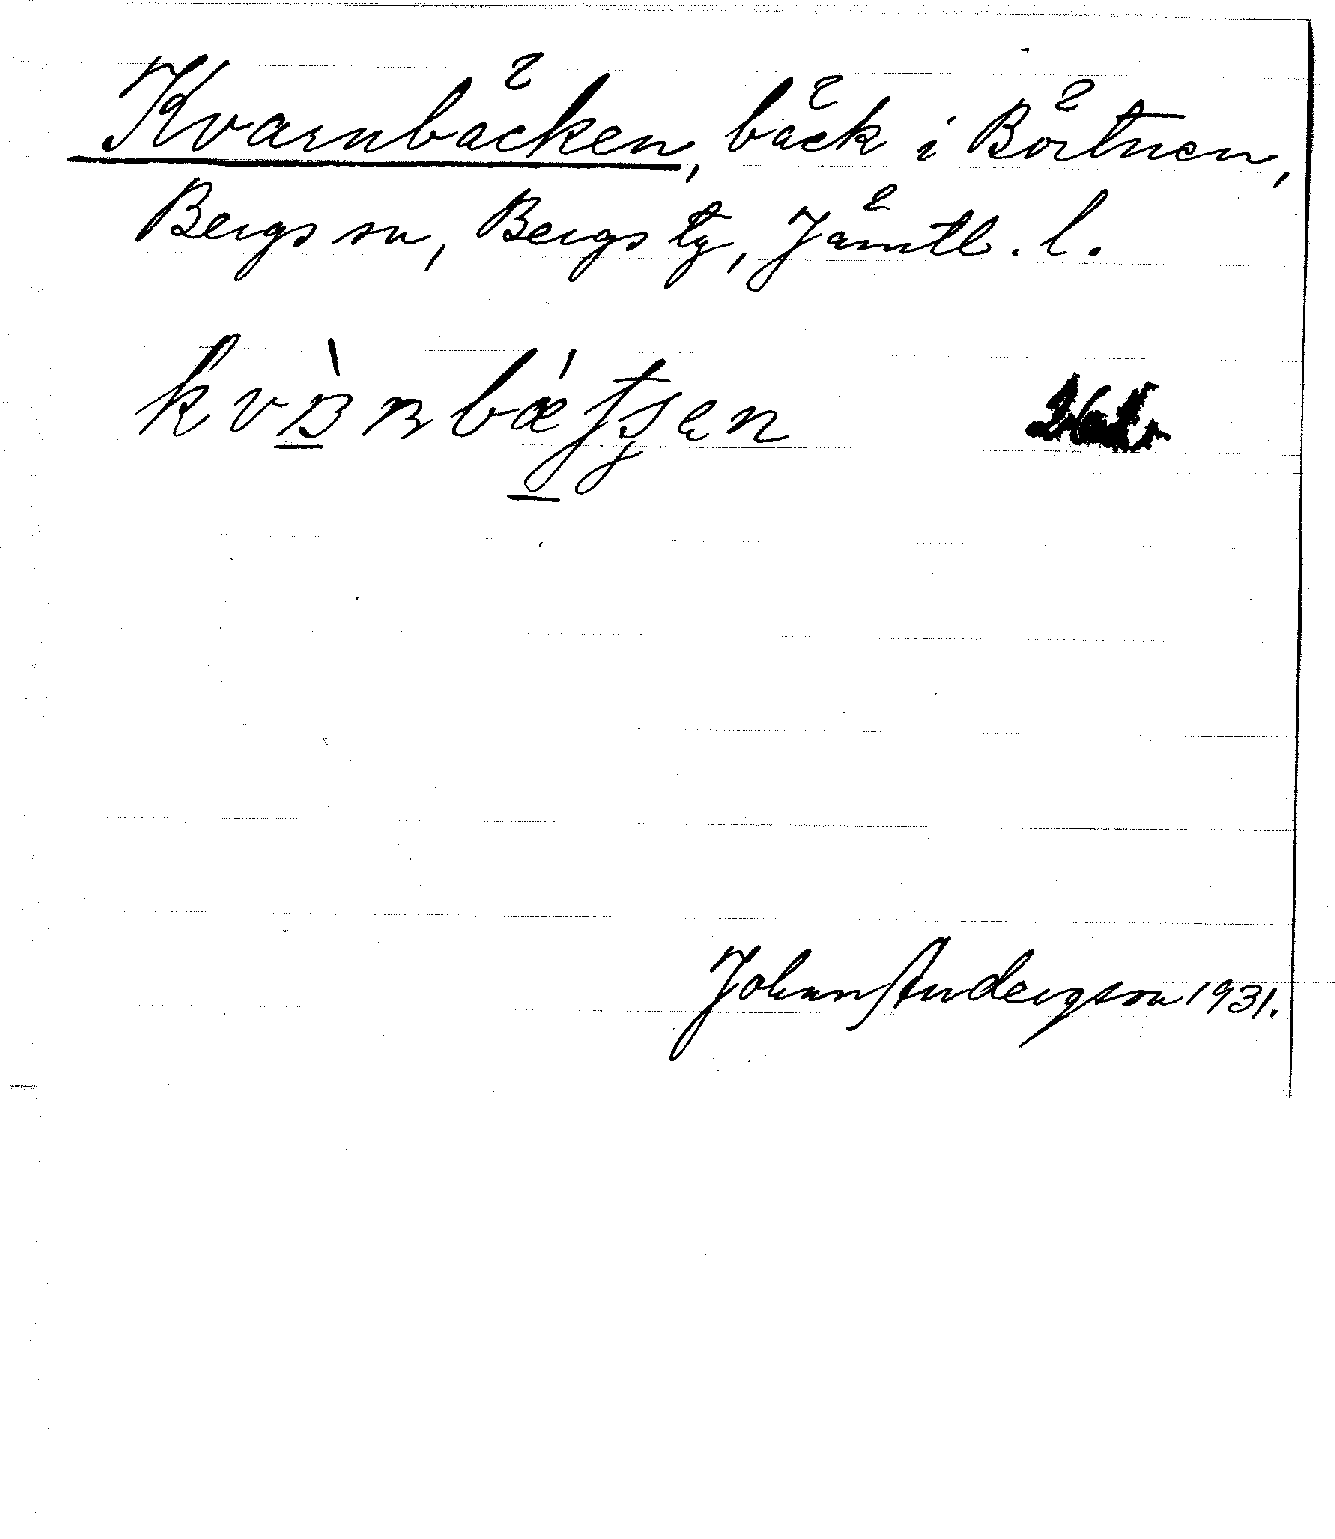 Kvarnbäcken, bäck i Börtnen,
Bergs sn, Bergs tg, Jämtl. l.
Johan Anderson 1931.